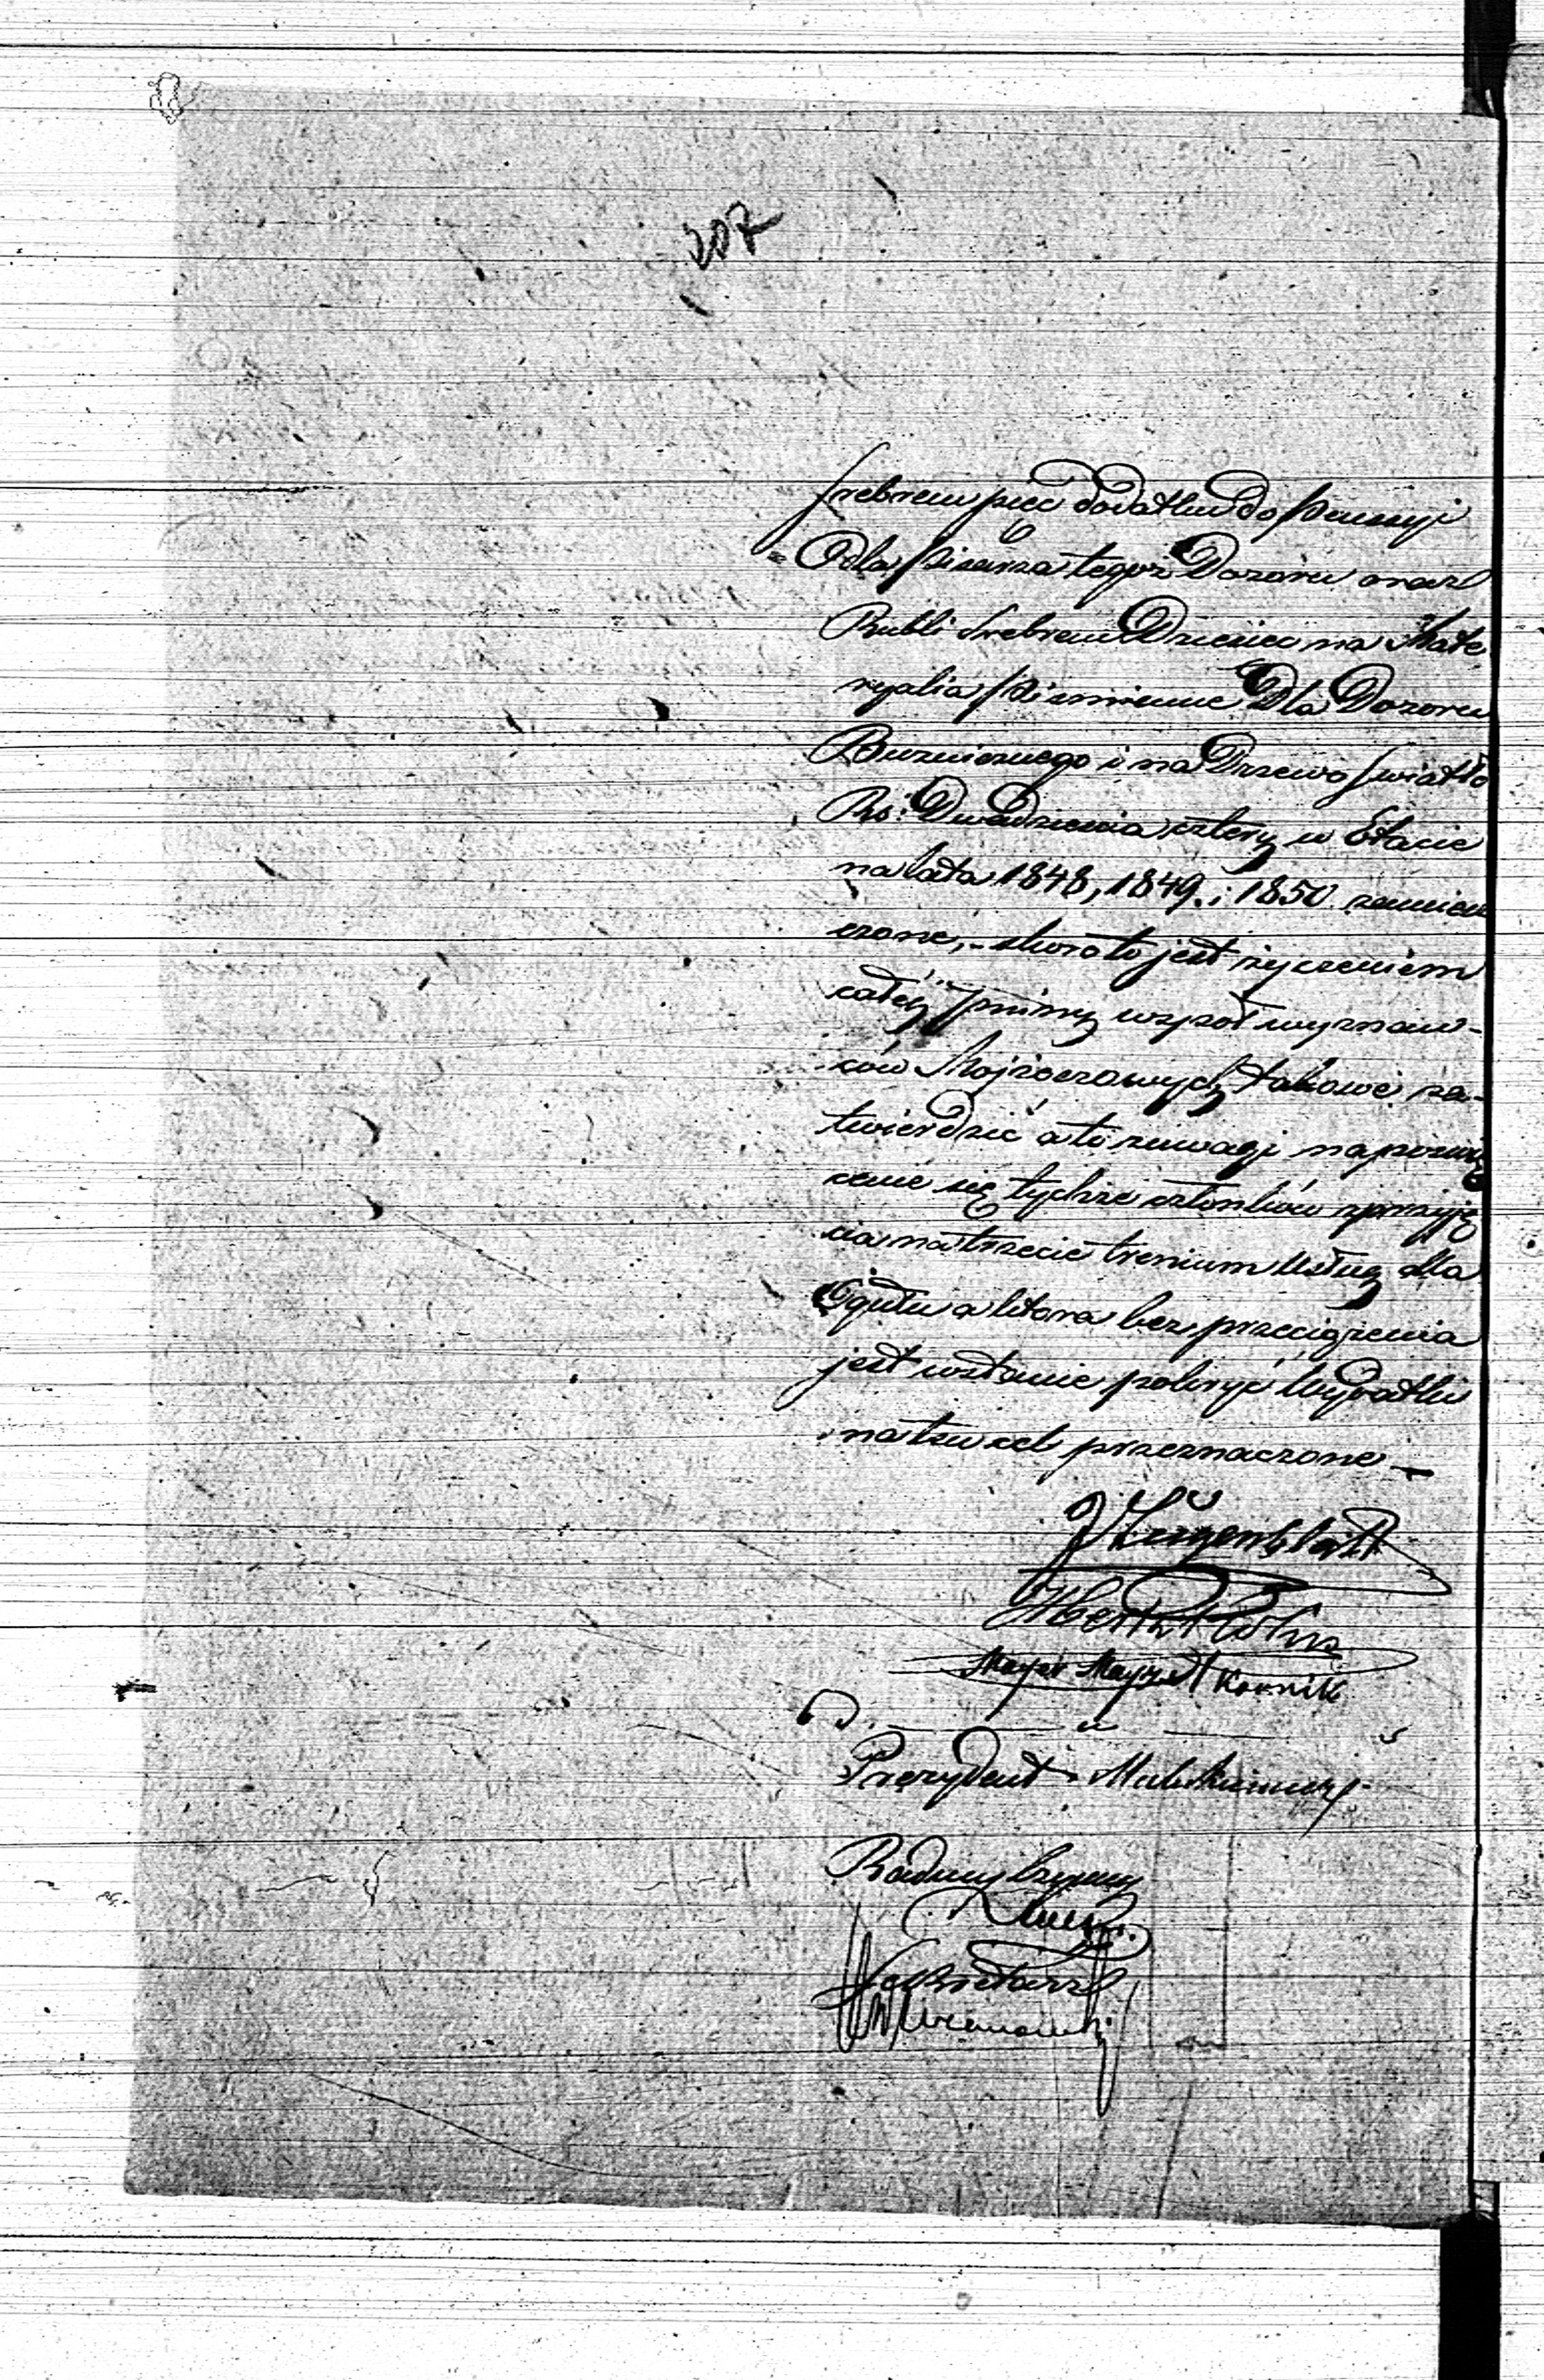 207
srebrem pięć dodatku do Pensyi
Dla Pisarza tegoż Dozoru oraz
Rubli srebrem Dziesięć na Mate
ryalia Piśmienne Dla Dozoru
Bużnicznego i na Drzewo światło
Rs: Dwadzieścia cztery w Etacie
na lata 1848, 1849. i 1850 zamiesz
czone, skoro to jest życzeniem
całéj gminy wspoł wyznaw-
ców Mojżeszowych takowe za-
twierdzić a to zuwagi na poswię
cenie się tychże członków zprzyję
cia na trzecie trenium usług dla
Ogułu a która bez przeciążenia
jest wstanie pokryć Wydatki
na ten cel przeznaczone —
Herz Kohn
Mayer Kornik
Prezydent
Radny
Sekretarz